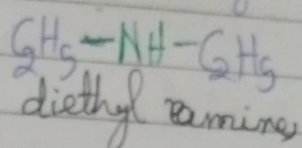 C₂H₅-NH-C₂H₅
diethyl amine